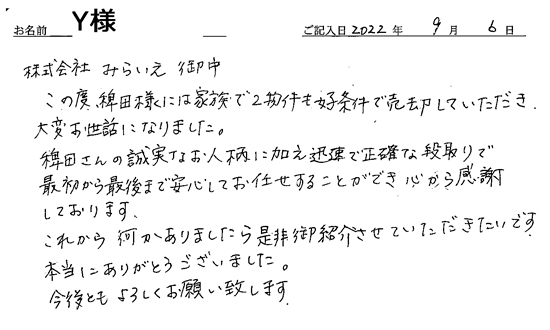 お名前 Y様 ご記入日 2022年 9月 6日
株式会社 みらいえ 御中
この度、稗田様には家族で2物件も好条件で売却していただき、
大変お世話になりました。
稗田さんの誠実なお人柄に加え迅速で正確な段取りで
最初から最後まで安心してお任せすることができ心から感謝
しております。
これから何かありましたら是非御紹介させていただきたいです
本当にありがとうございました。
今後ともよろしくお願い致します